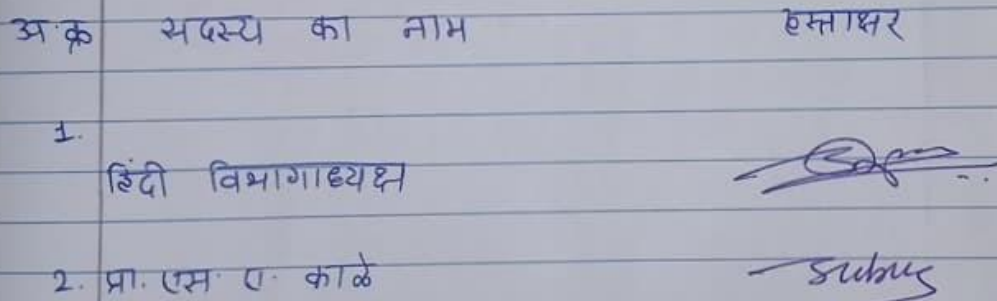 अ.क्र सदस्य का नाम हस्ताक्षर
1.
हिंदी विभागाध्यक्ष
2. प्रा. एस. ए. काळे